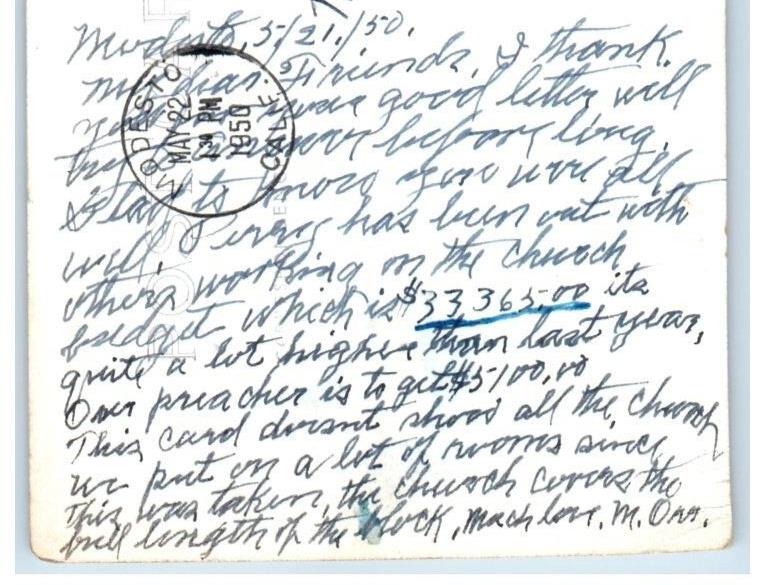 Modesto, 5/21./50.
my dear Friends, I thank
you your good letter will
try answer before long.
Glad to know you were all
well. Perry has been out with
others working on the church
budget which is $33,365.00 its
quite a lot higher than last year,
Our preacher is to get $5100.00
This card doesnt show all the church
we put on a lot of rooms since
this was taken, the church covers the
full length of the block, Much love, M. Orr.
MODESTO CALIF.
MAY 22
1 30 PM
1950